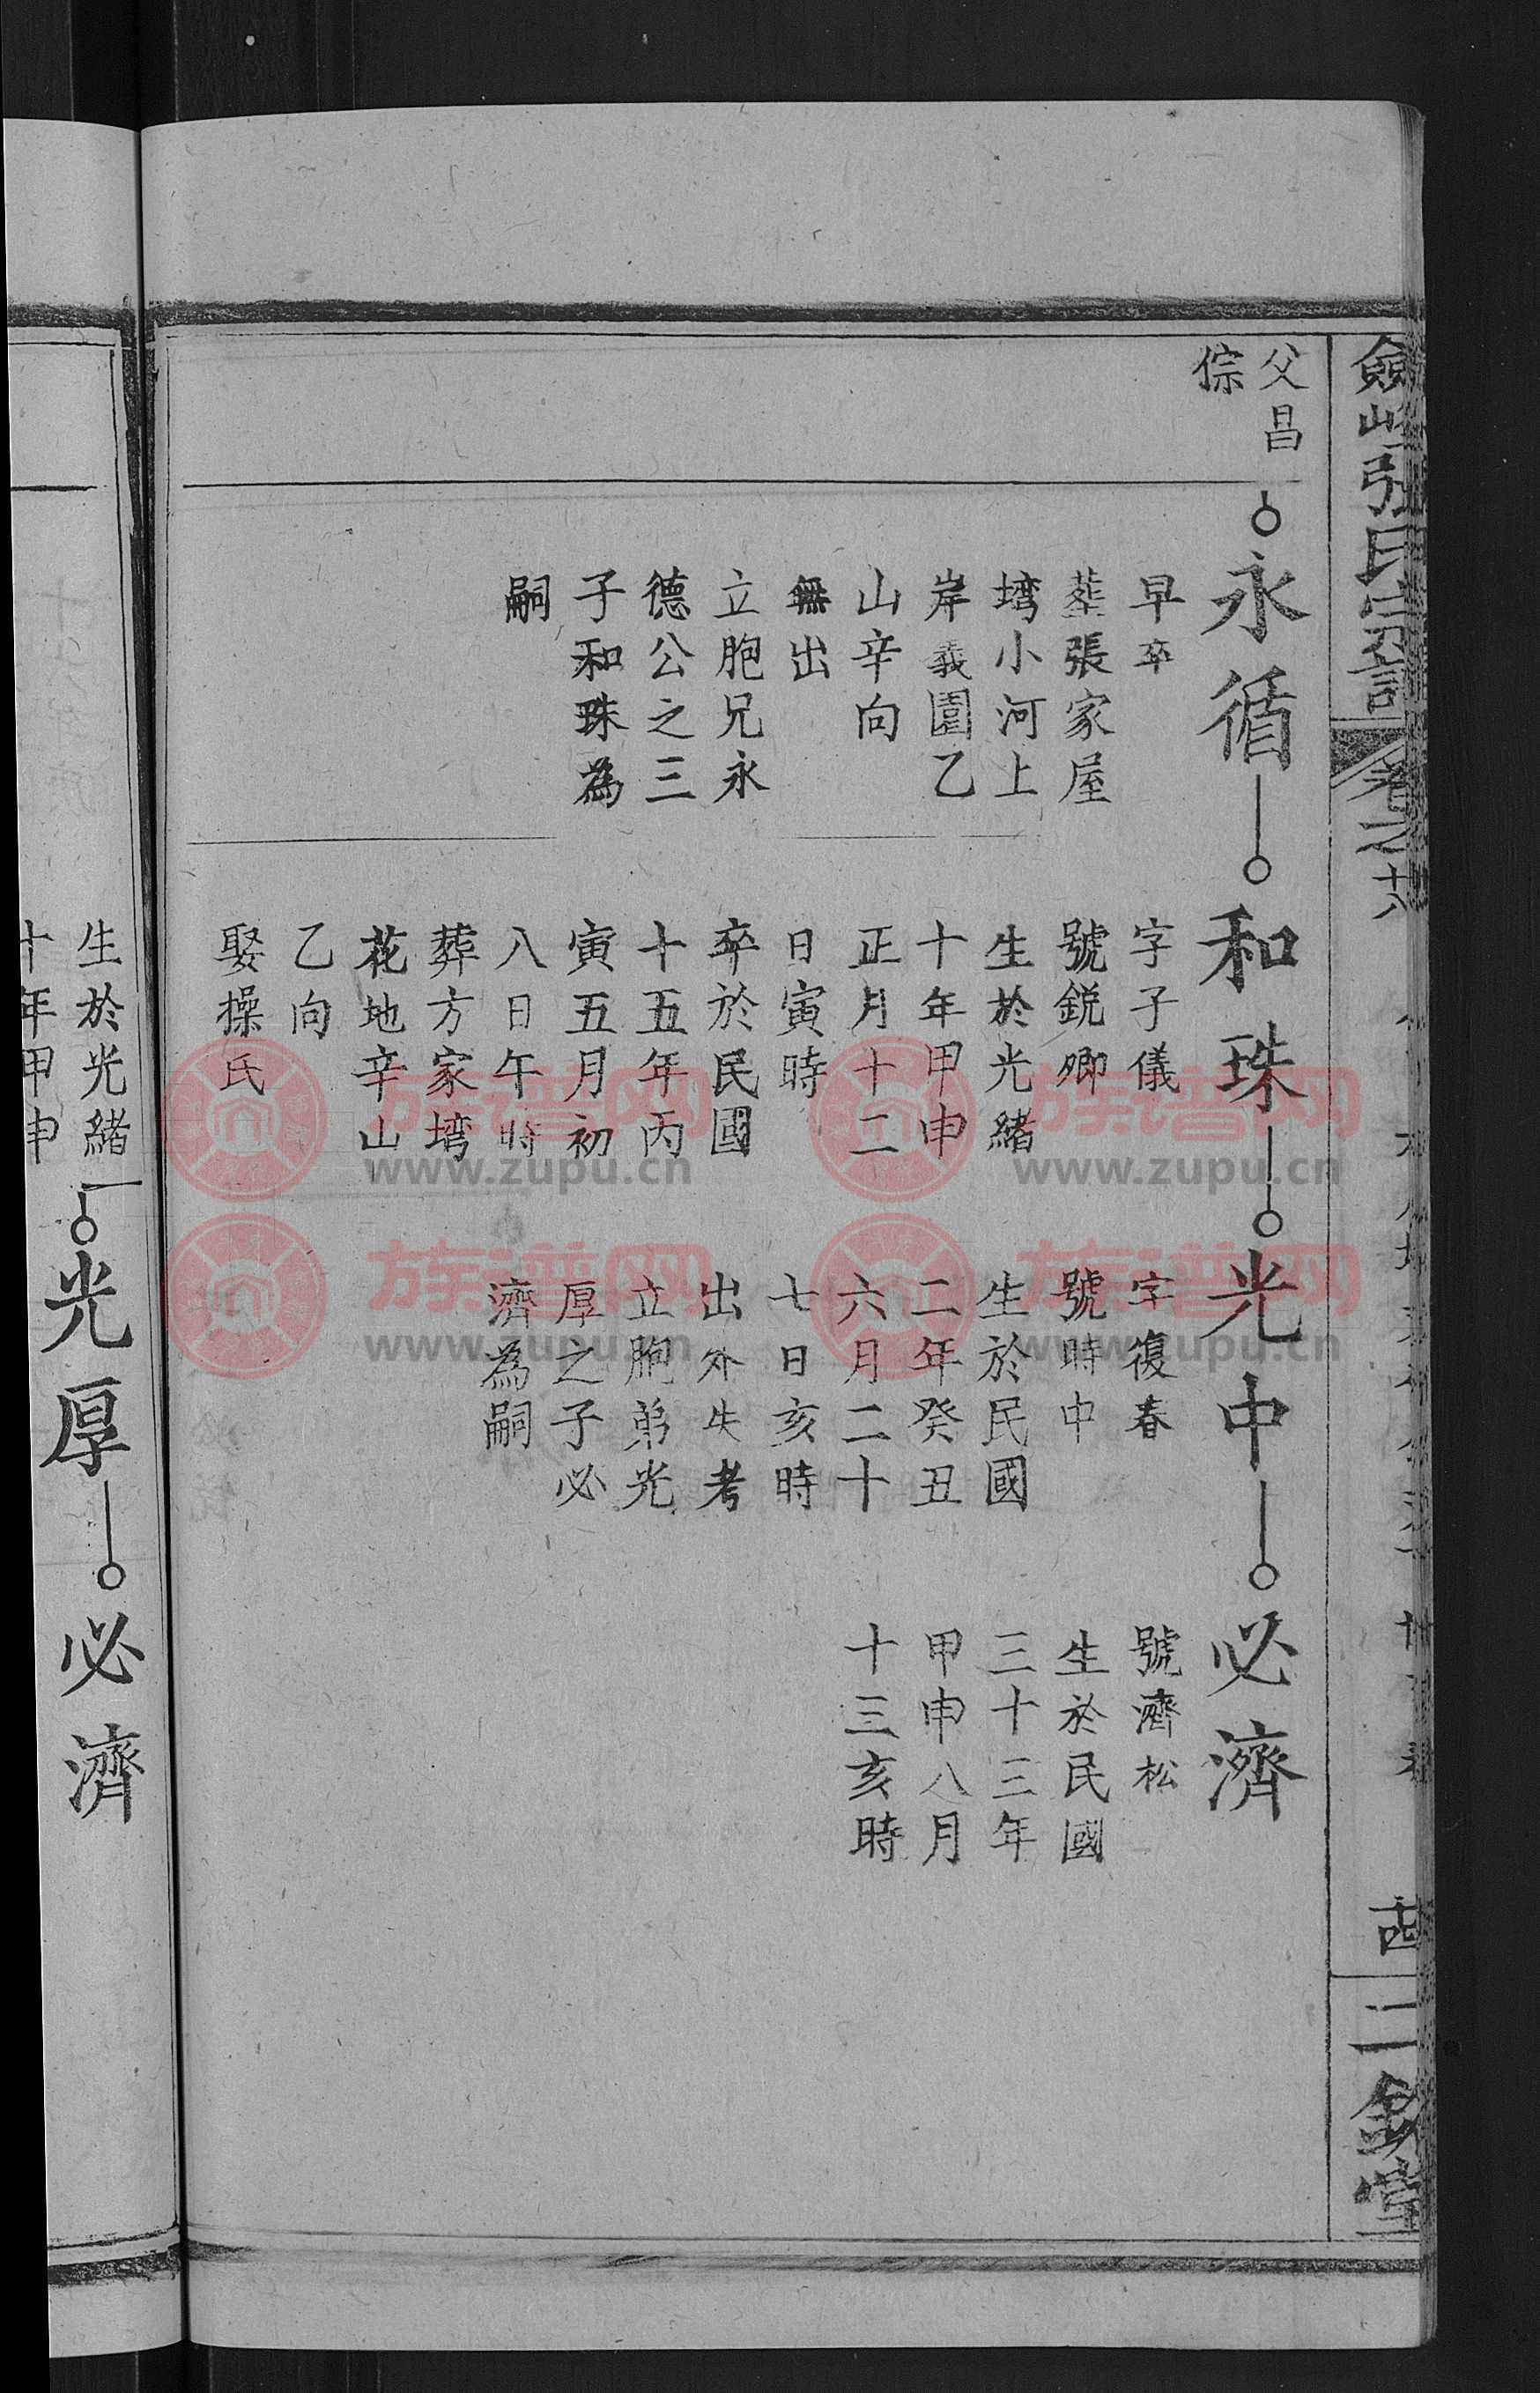 張氏宗譜
卷之
二銘堂
父昌
倧
永循
早卒
塟張家屋
塆小河上
岸義園乙
山辛向
無出
立胞兄永
德公之三
子和珠為
嗣
和珠
字子儀
號銳卿
生於光緒
十年甲申
正月十二
日寅時
卒於民國
十五年丙
寅五月初
八日午時
葬方家塆
花地辛山
乙向
娶操氏
光中
字復春
號時中
生於民國
二年癸丑
六月二十
七日亥時
出外失考
立胞弟光
厚之子必
濟為嗣
必濟
號濟松
生於民國
三十三年
甲申八月
十三亥時
生於光緒
十年甲申
光厚
必濟
族谱网
www.zupu.cn
族谱网
www.zupu.cn
族谱网
www.zupu.cn
族谱网
www.zupu.cn